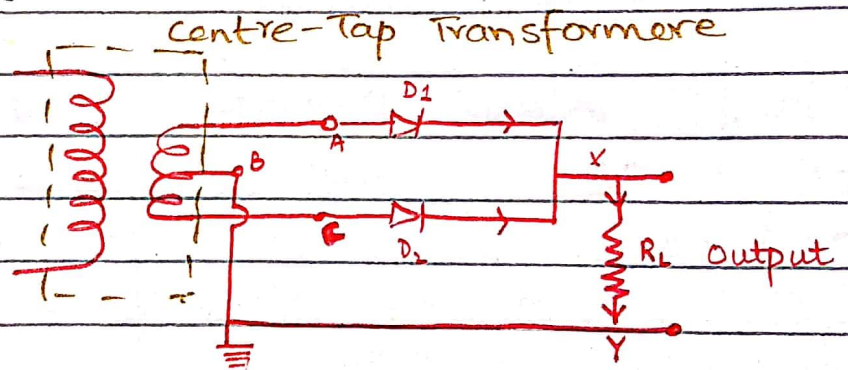 Centre-Tap Transformere
D1
A
B
X
C
D2
RL Output
Y